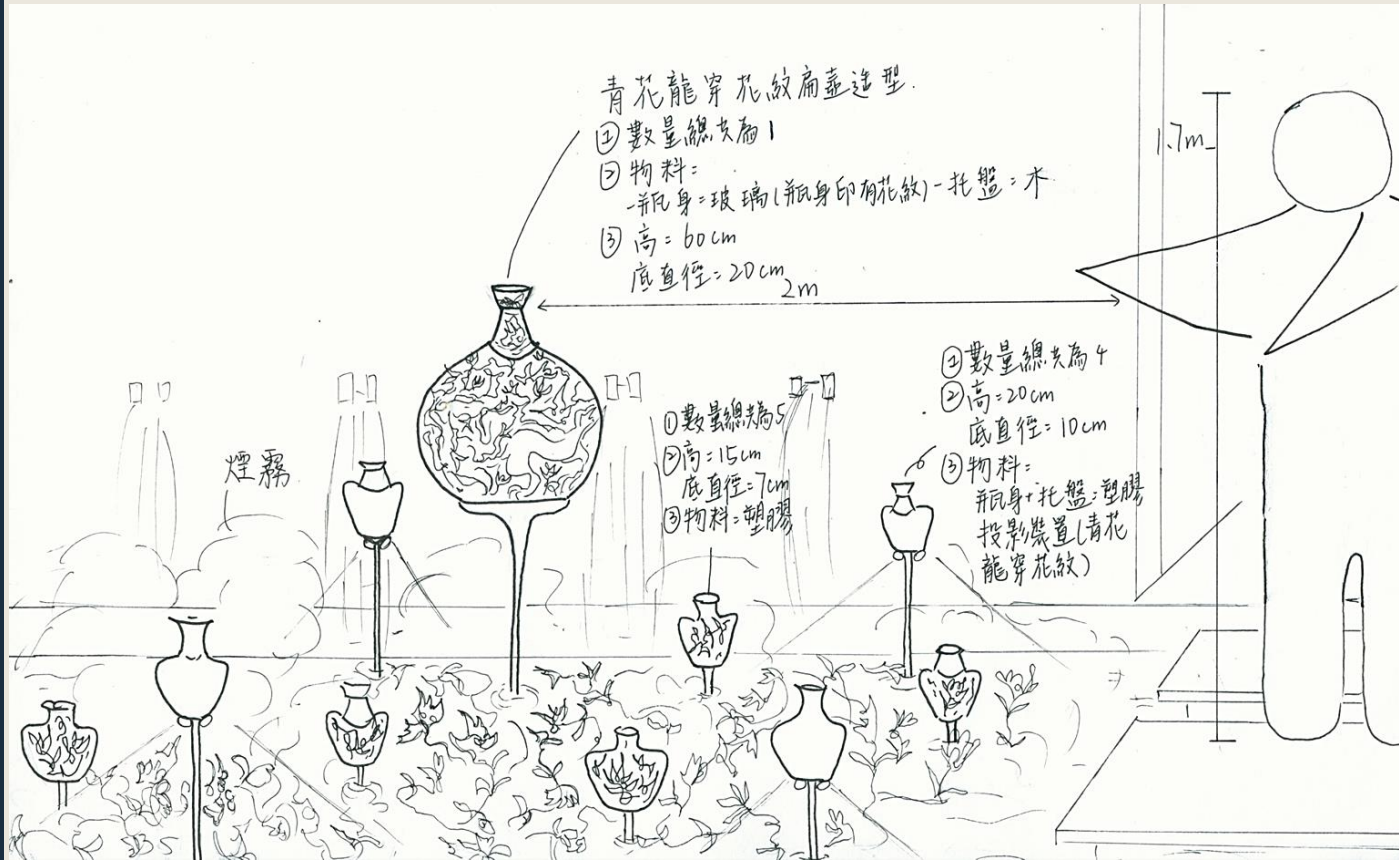 青花龍穿花紋扁壺造型.
① 數量總共為1
② 物料:
-瓶身=玻璃(瓶身印有花紋)-托盤:木
③ 高=60cm
底直徑=20cm
2m
1.7m
煙霧
① 數量總共為5
② 高=15cm
底直徑=7cm
③ 物料:塑膠
① 數量總共為4
② 高=20cm
底直徑=10cm
③ 物料:
瓶身+托盤:塑膠
投影裝置(青花
龍穿花紋)